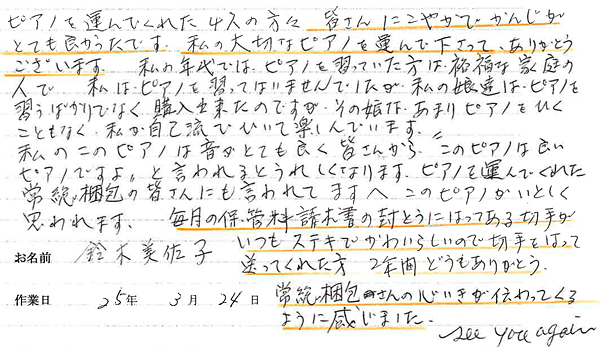 ピアノを運んでくれた4人の方々 皆さんにこやかでかんじが
とても良かったです。私の大切なピアノを運んで下さって、ありがとう
ございます 私の年代では、ピアノを習っていた方は裕福な家庭の
人で 私は、ピアノを習ってはいませんでしたが 私の娘達は、ピアノを
習うばかりでなく 購入出来たのですが、その娘は、あまりピアノをひく
こともなく、私が自己流でひいて楽しんでいます。
私のこのピアノは音がとても良く皆さんから、"このピアノは良い
ピアノですよ。と言われるとうれしくなります。ピアノを運んでくれた
常総梱包の皆さんにも言われてますへ このピアノがいとしく
思われます。 毎月の保管料請求書の封とうにはってある切手が
いつもステキでかわいらしいので切手をはって
お名前 鈴木美佐子
送ってくれた方 2年間どうもありがとう。
作業日 25年 3月 24日
常総梱包さんの心いきが伝わってくる
ように感じました。
see you again